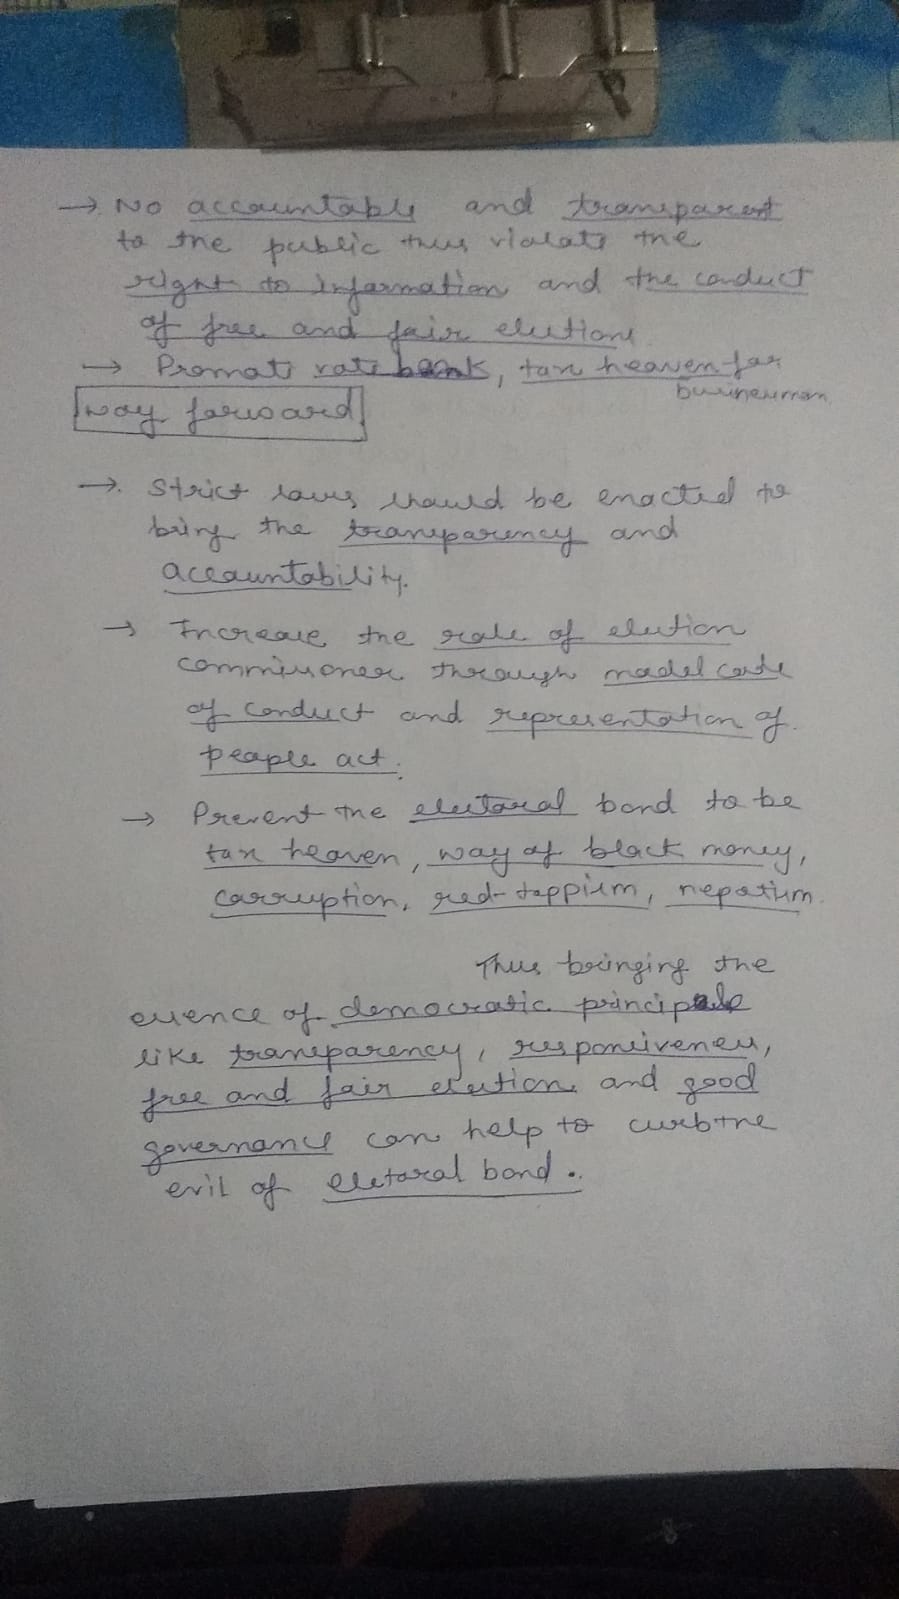 → No accountable and transparent
to the public thus violate the
right to information and the conduct
of free and fair elections
→ Promote vote bank, tax heaven for
businessman
way forward
→ Strict laws should be enacted to
bring the transparency and
accountability.
→ Increase the role of election
commissioner through model code
of conduct and representation of
people act.
→ Prevent the electoral bond to be
tax heaven, way of black money,
corruption, red-tappism, nepotism.
Thus bringing the
essence of democratic principle
like transparency, responsiveness,
free and fair elections and good
governance can help to curb the
evil of eletoral bond.